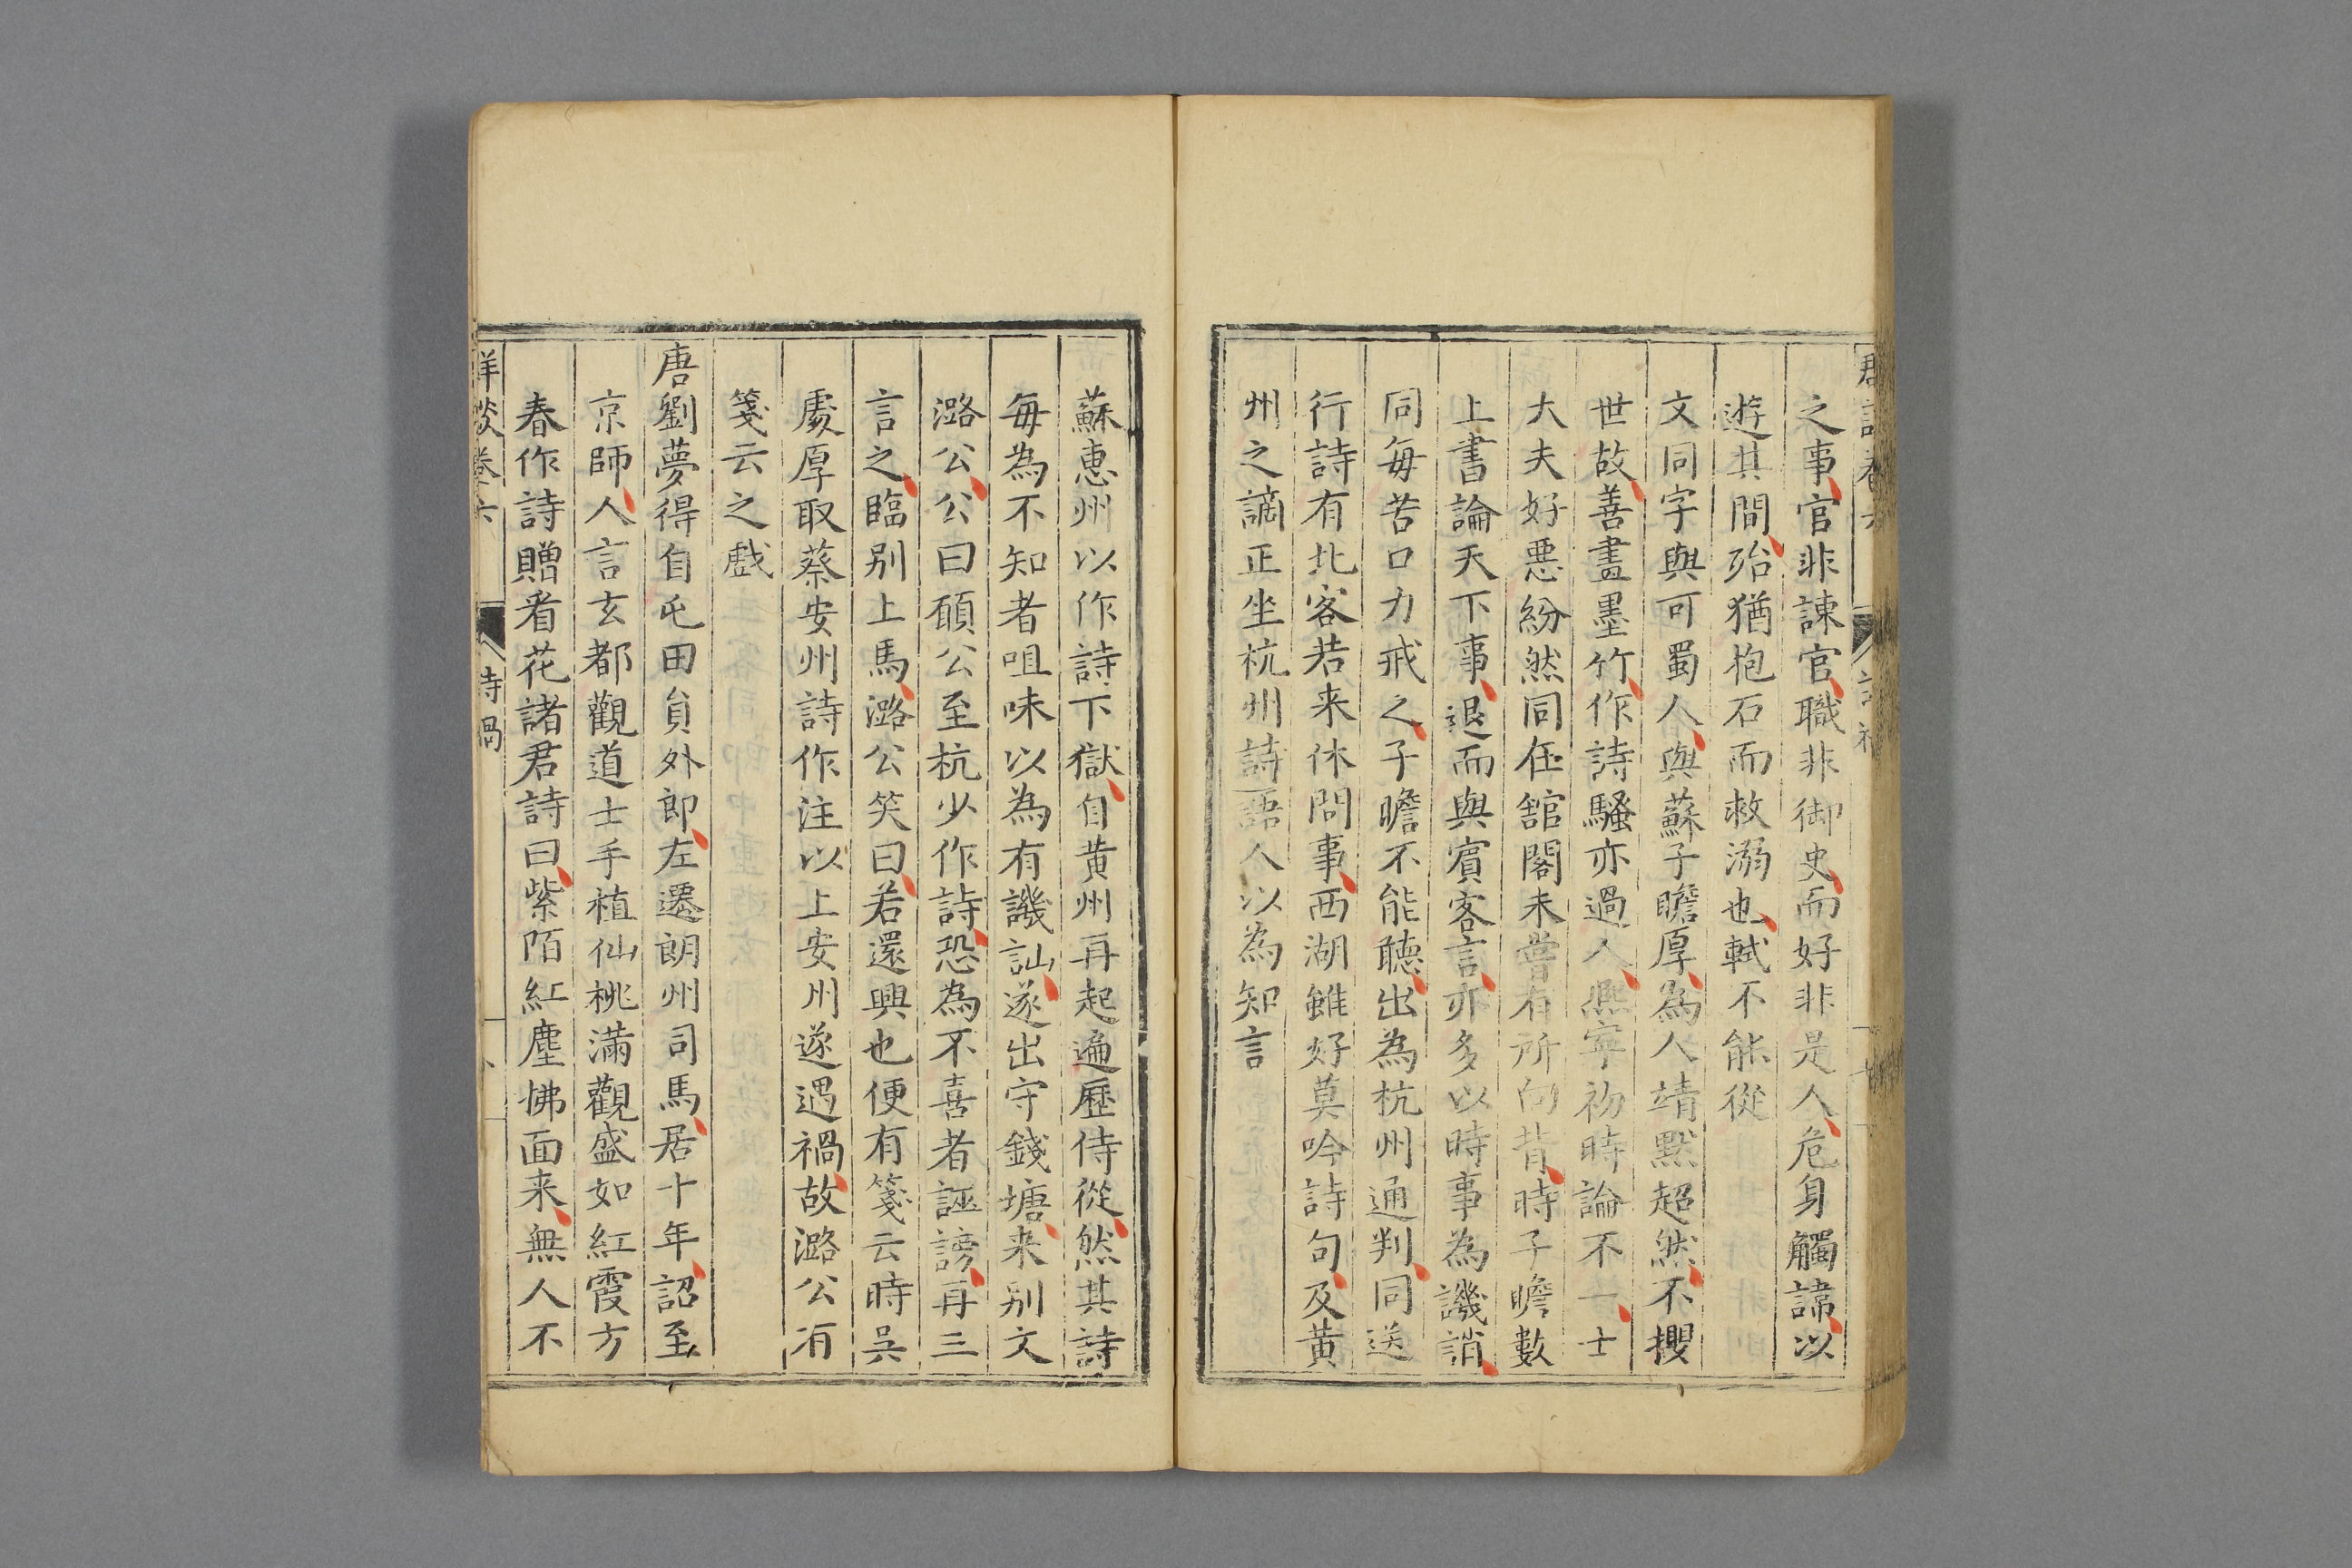 之事官非諫官職非御史而好非是人危身觸諱以
遊其間殆猶抱石而救溺也軾不能從
文同字與可蜀人與蘇子瞻厚為人靖默超然不攖
世故善畫墨竹作詩騷亦過人熈寧初時論不一士
大夫好惡紛然同在舘閣未嘗有所向背時子瞻數
上書論天下事退而與賓客言亦多以時事為譏誚
同每苦口力戒之子瞻不能聽出為杭州通判同送
行詩有北客若来休問事西湖雖好莫吟詩句及黄
州之謫正坐杭州詩語人以為知言
蘇惠州以作詩下獄自黄州再起遍歷侍從然其詩
每為不知者咀味以為有譏訕遂出守錢塘来别文
潞公公曰願公至杭少作詩恐為不喜者誣謗再三
言之臨别上馬潞公笑曰若還興也便有箋云時吳
處厚取蔡安州詩作注以上安州遂遇禍故潞公有
箋云之戲
唐劉夢得自屯田員外郎左遷朗州司馬居十年詔至
京師人言玄都觀道士手植仙桃滿觀盛如紅霞方
春作詩贈看花諸君詩曰紫陌紅塵怫面来無人不
詳談卷六 詩禍